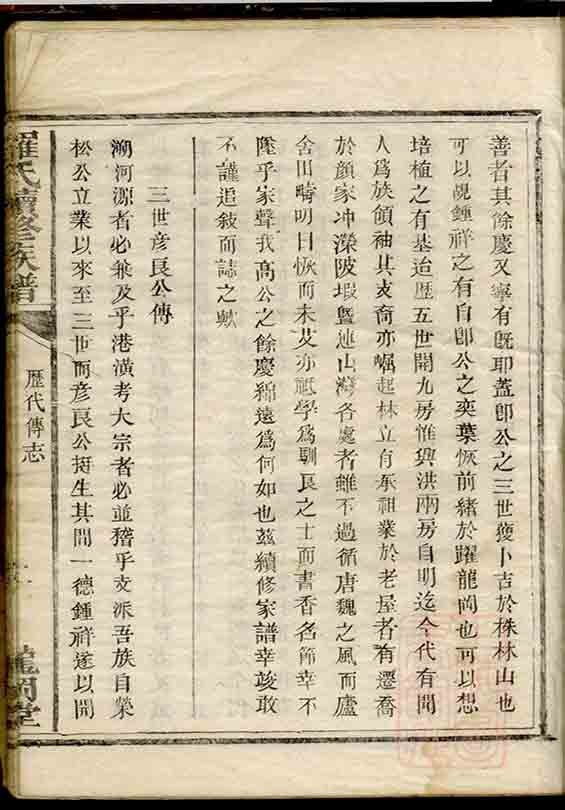 善者其餘慶又寧有旣耶蓋卽公之三世獲卜吉於株林山也
可以覘鍾祥之有自卽公之奕葉恢前緒於躍龍岡也可以想
培植之有基迨歷五世開九房惟興洪兩房自明迄今代有聞
人爲族領袖其支裔亦崛起林立有承祖業於老屋者有遷喬
於顏家冲濚陂塅曁連山灣各處者雖不過循唐魏之風而廬
舍田疇明日恢而未艾亦祗學爲馴良之士而書香名節幸不
墜乎家聲我高公之餘慶綿遠爲何如也茲續修家譜幸竣敢
不謹追敍而誌之歟
三世彥良公傳
溯河源者必兼及乎港潢考大宗者必並稽乎支派吾族自榮
松公立業以來至三世而彥良公挺生其間一德鍾祥遂以開
羅氏續修族譜
歷代傳志
龍岡堂